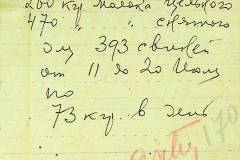 200 кгр. молока цельного
470 " " снятого
для 393 свиней
от 11 до 20 Июля
по
73 кгр. в день
170